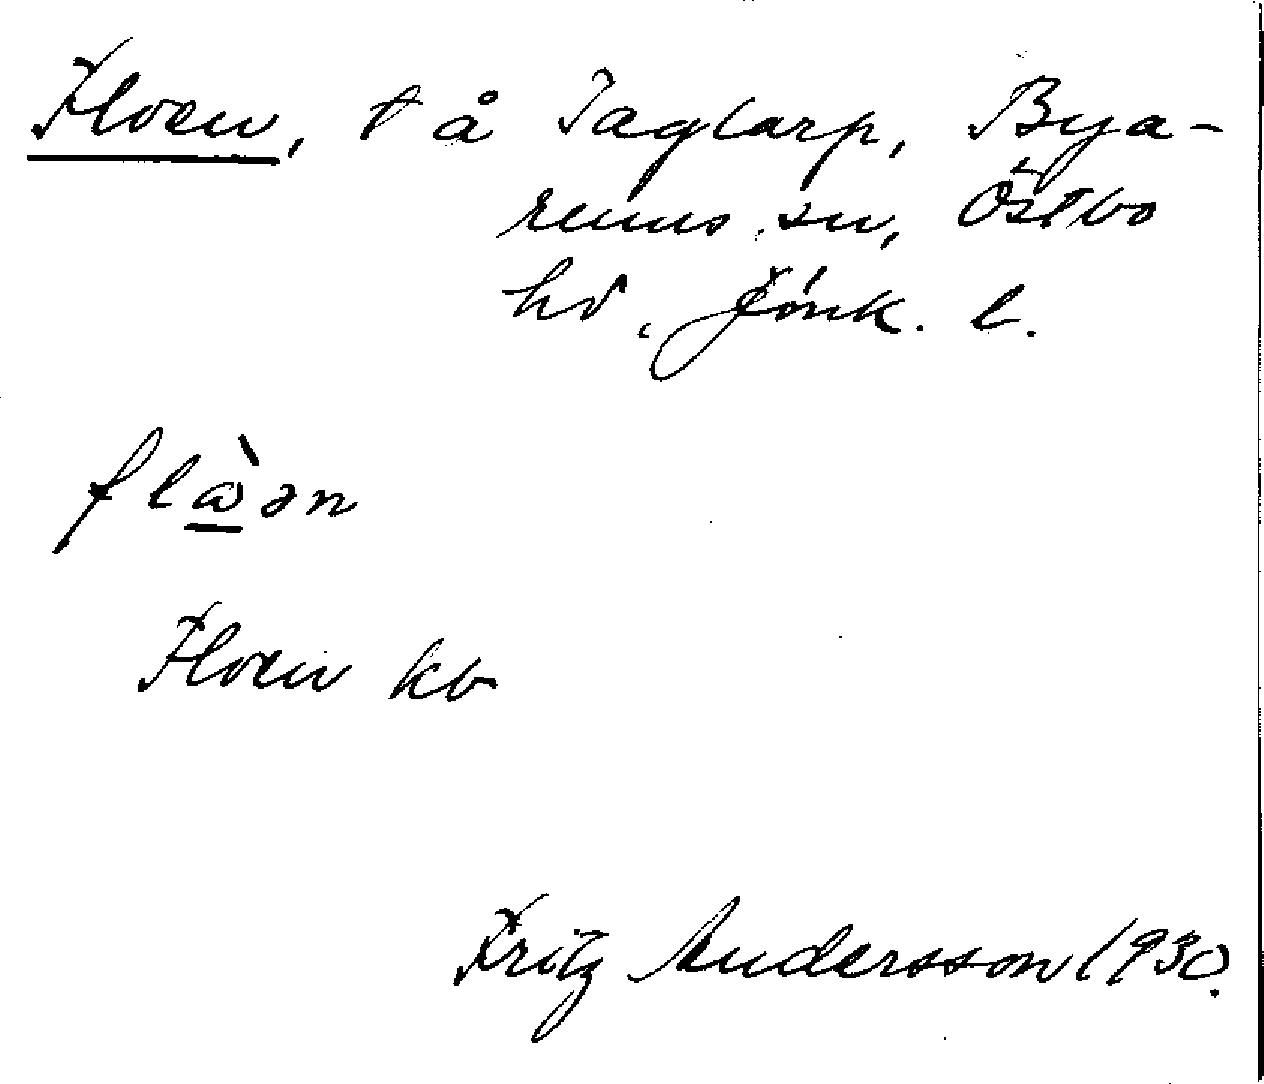 Floen, t å Taglarp, Bya-
rums sn, Östbo
hd, Jönk. l.
flὼən
Floen kb
Fritz Andersson 1930.